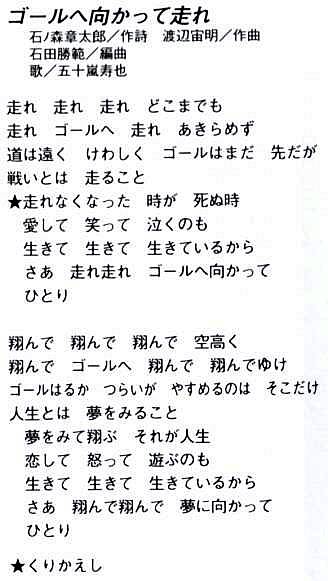 ゴールへ向かって走れ
石ノ森章太郎／作詩　渡辺宙明／作曲
石田勝範／編曲
歌／五十嵐寿也
走れ　走れ　走れ　どこまでも
走れ　ゴールへ　走れ　あきらめず
道は遠く　けわしく　ゴールはまだ　先だが
戦いとは　走ること
★走れなくなった　時が　死ぬ時
愛して　笑って　泣くのも
生きて　生きて　生きているから
さあ　走れ走れ　ゴールへ向かって
ひとり
翔んで　翔んで　翔んで　空高く
翔んで　ゴールへ　翔んで　翔んでゆけ
ゴールはるか　つらいが　やすめるのは　そこだけ
人生とは　夢をみること
夢をみて翔ぶ　それが人生
恋して　怒って　遊ぶのも
生きて　生きて　生きているから
さあ　翔んで翔んで　夢に向かって
ひとり
★くりかえし